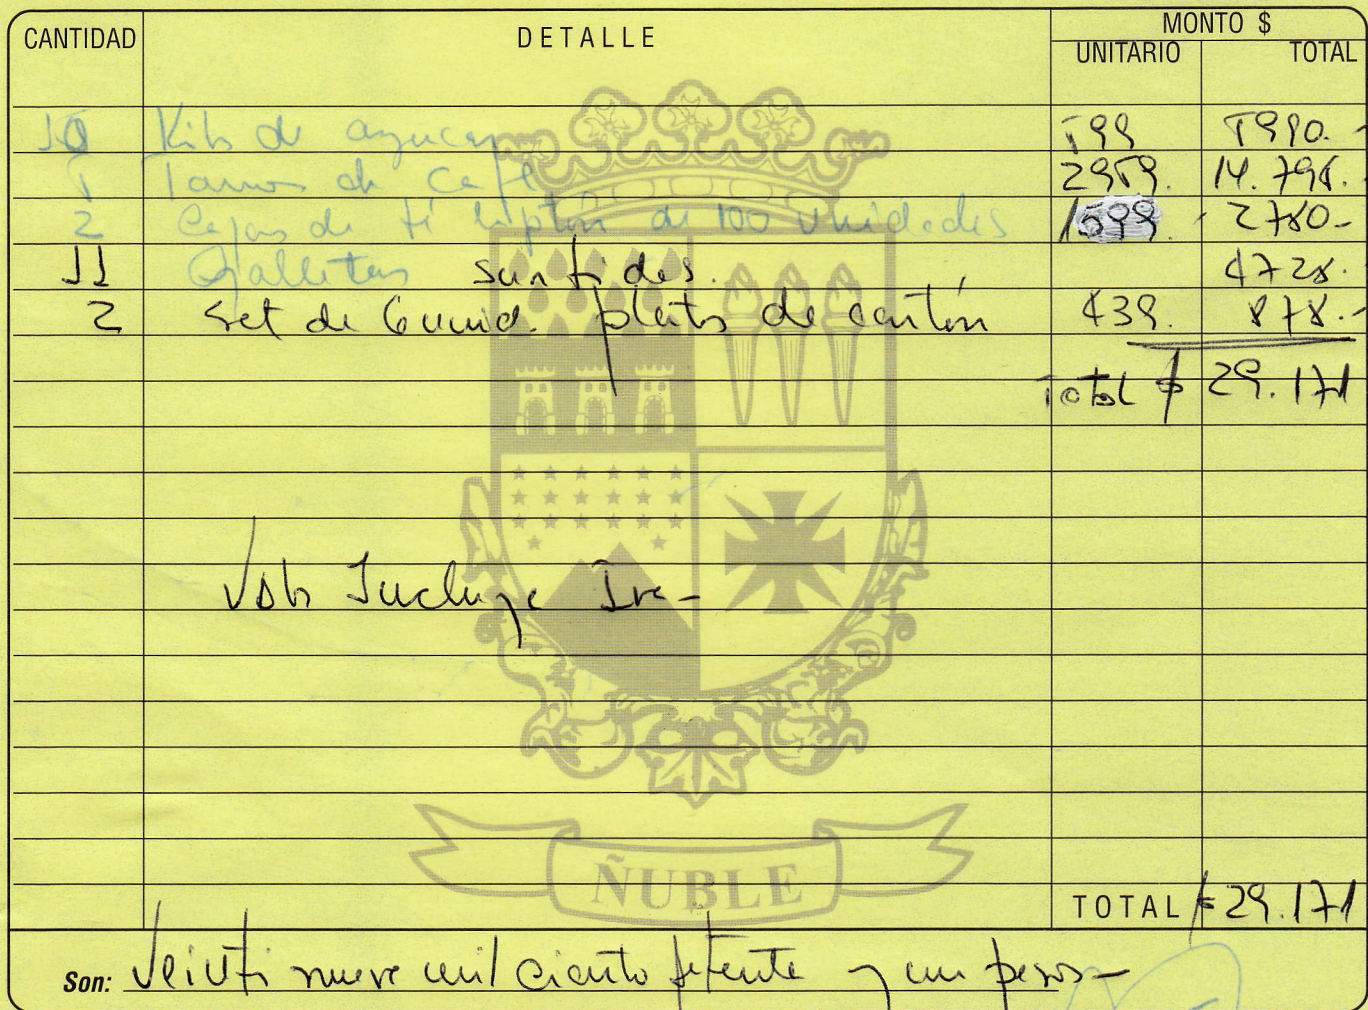 CANTIDAD DETALLE MONTO $
UNITARIO TOTAL
10 Kilos de azucar 599 5990.-
5 Tarros de Cafe 2959. 14.795.-
2 Cajas de té lipton de 100 unidades 1599. 2780-
11 Galletas surtidas. 4728.-
2 Set de 6 unid. platos de cartón 439. 878.-
Total $ 29.171
Valor Incluye Iva-
ÑUBLE
TOTAL $29.171
Son: Veinti nueve mil ciento setenta y un pesos-